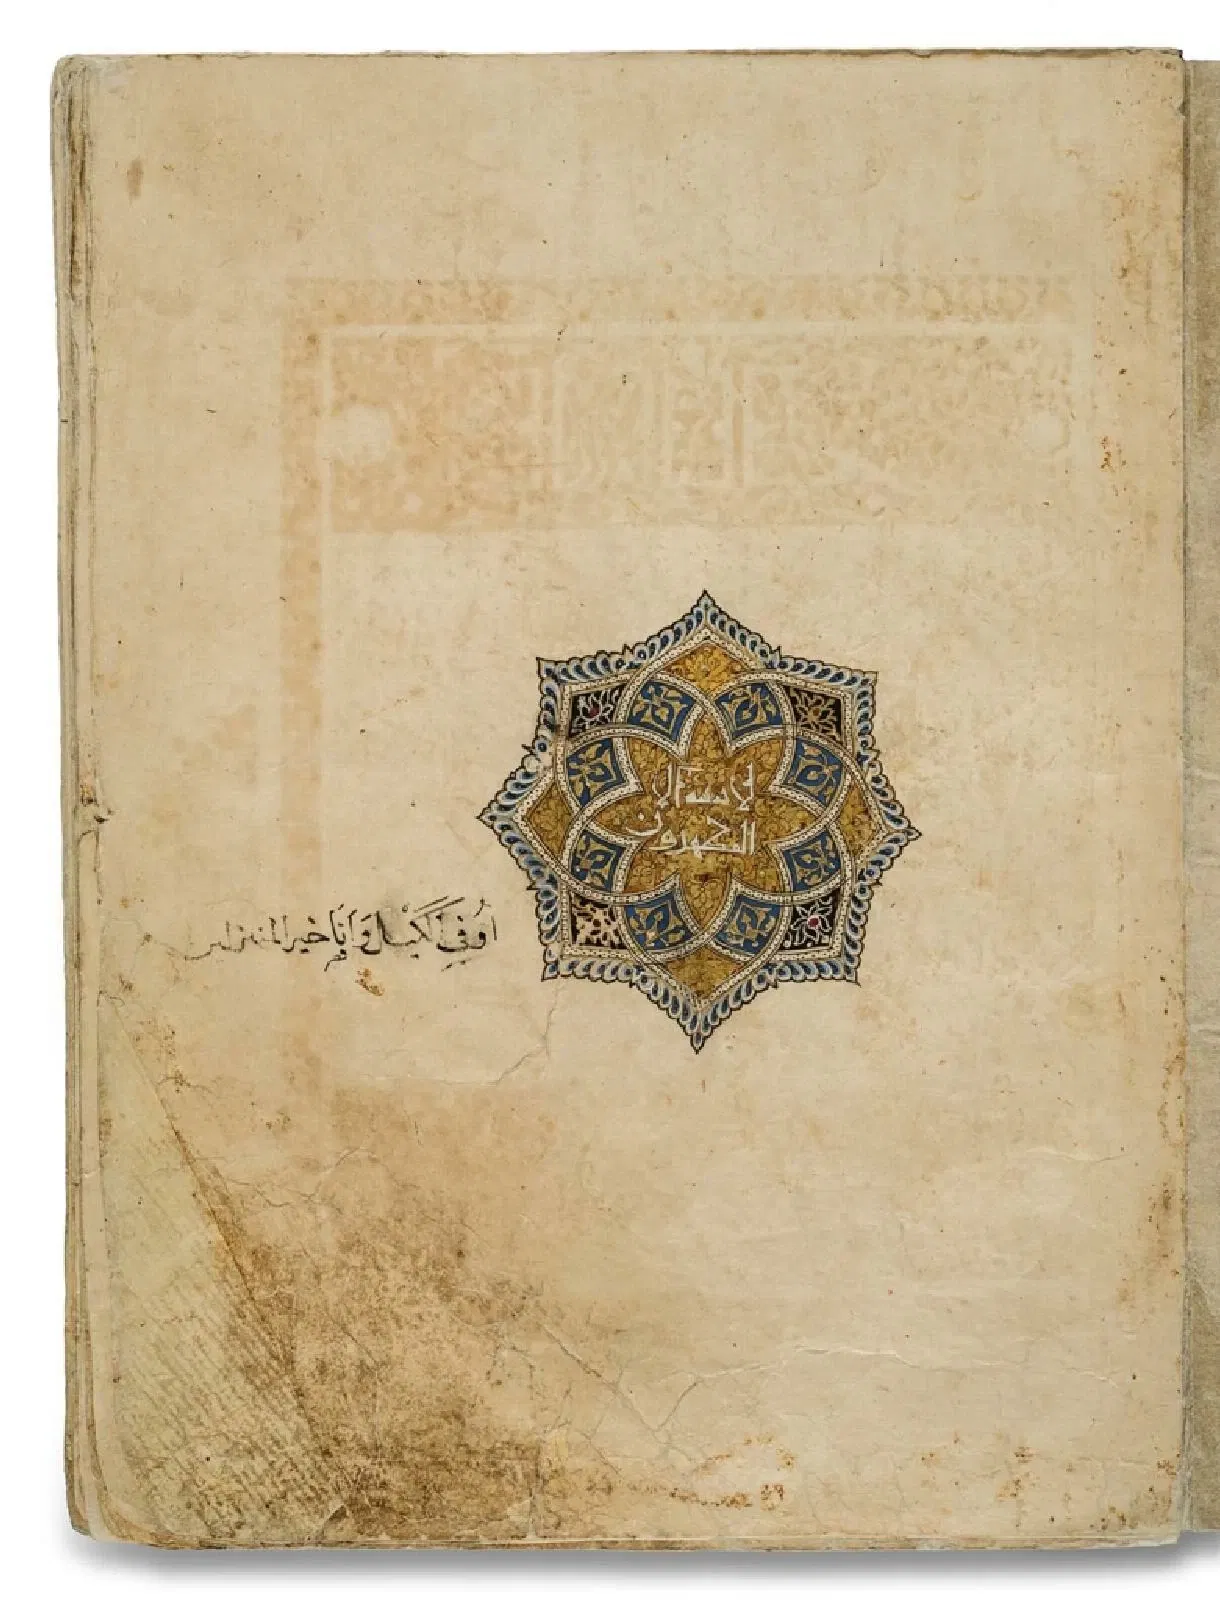 لا يمسه الا
المطهرون
اُوفي الكَيْل وَاَنَا خير المنزلين